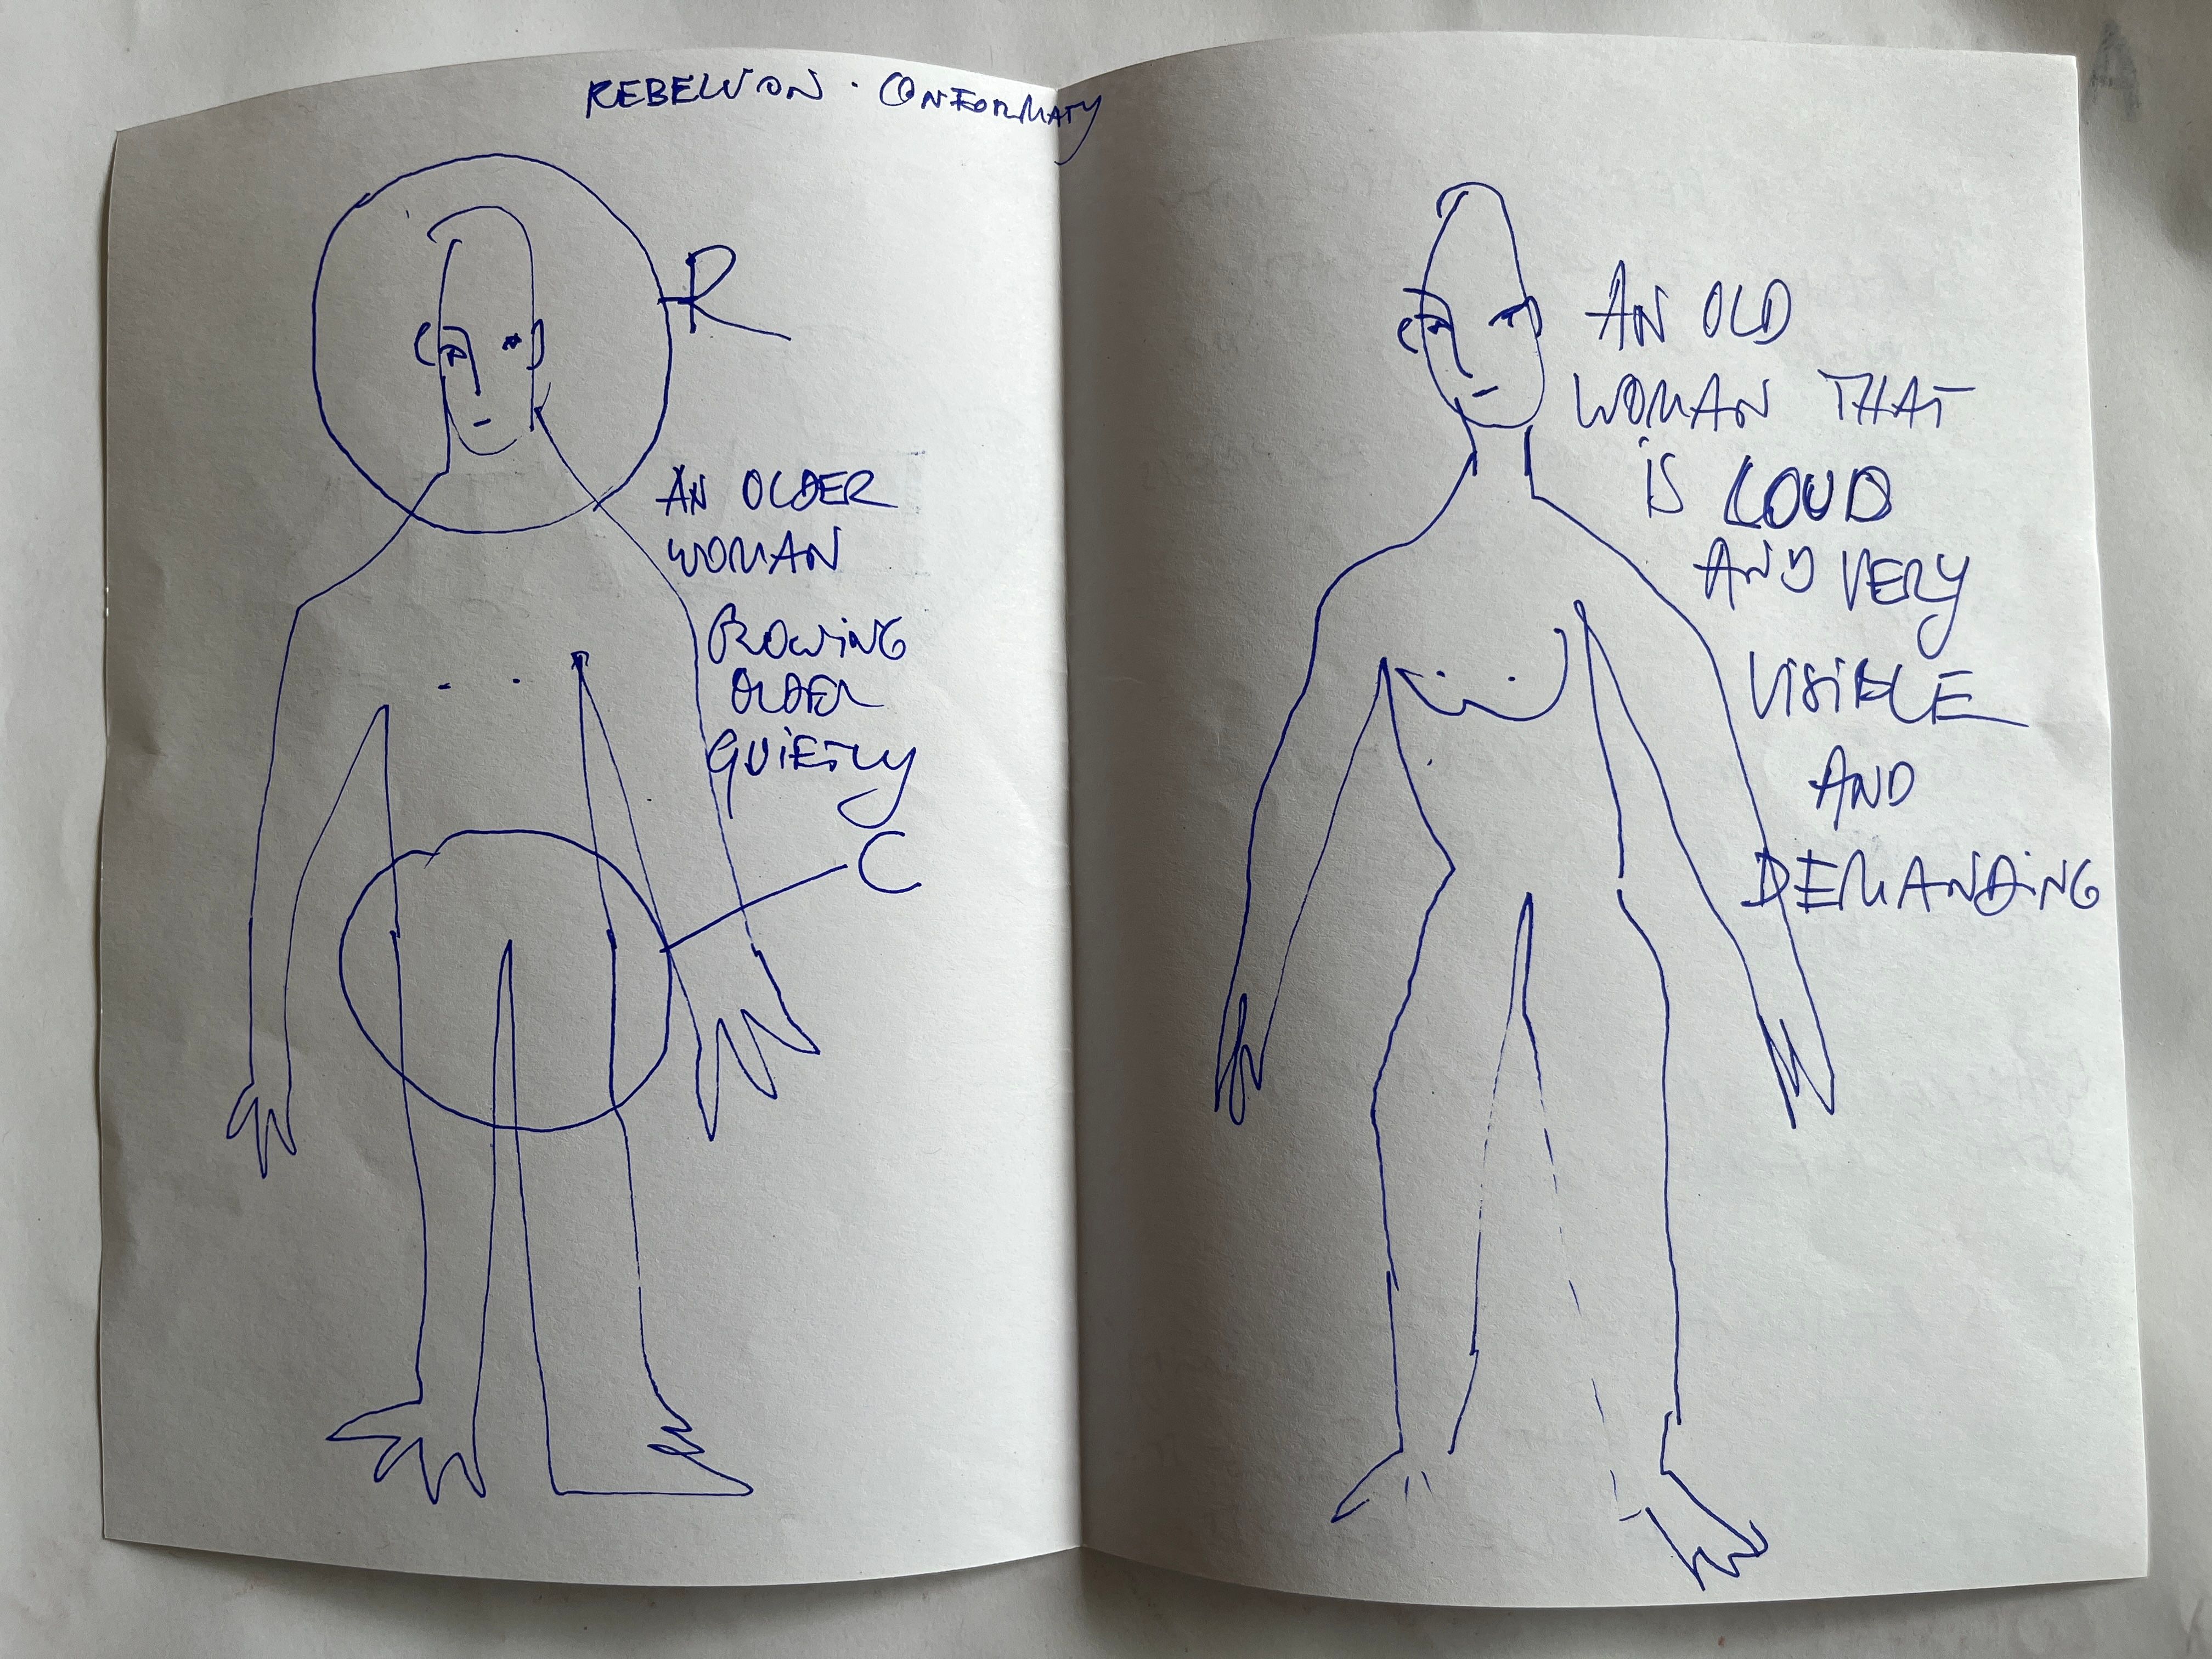 REBELLION · CONFORMATY
R
AN OLDER
WOMAN
GROWING
OLDER
QUIETLY
C
AN OLD
WOMAN THAT
IS LOUD
AND VERY
VISIBLE
AND
DEMANDING